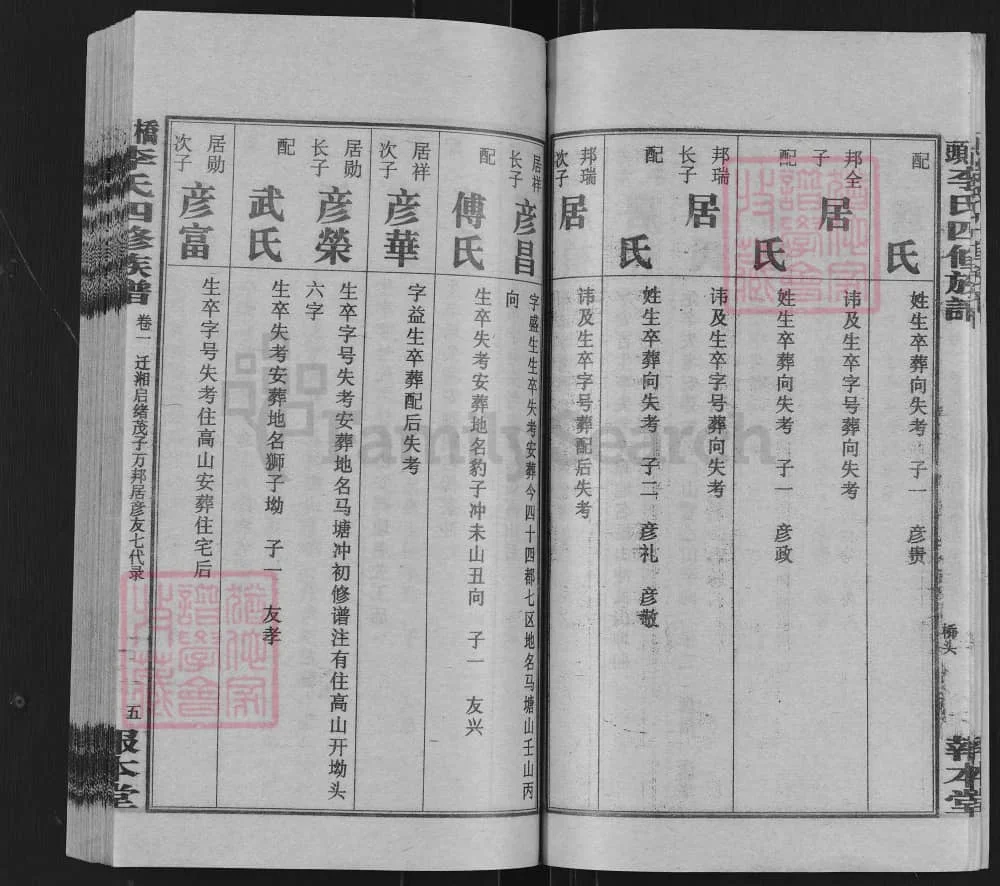 頭李氏四修族譜
橋头
報本堂
配
氏
姓生卒葬向失考 子一 彦贵
邦全
子
居
讳及生卒字号葬向失考
配
氏
姓生卒葬向失考 子一 彦政
邦瑞
长子
居
讳及生卒字号葬向失考
配
氏
姓生卒葬向失考 子二 彦礼 彦敬
邦瑞
次子
居
讳及生卒字号葬配后失考
居祥
长子
彦昌
字盛生生卒失考安葬今四十四都七区地名马塘山壬山丙
向
配
傅氏
生卒失考安葬地名豹子冲未山丑向 子一 友兴
居祥
次子
彦華
字益生卒葬配后失考
居勋
长子
彦榮
生卒字号失考安葬地名马塘冲初修谱注有住高山开坳头
六字
配
武氏
生卒失考安葬地名狮子坳 子一 友孝
居勋
次子
彦富
生卒字号失考住高山安葬住宅后
橋李氏四修族譜
卷一 迁湘启绪茂子万邦居彦友七代录
五
報本堂
FamilySearch